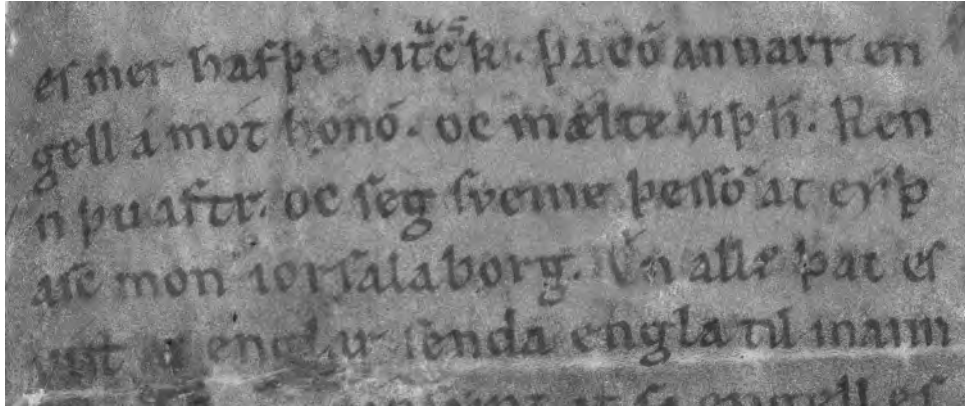 eſ mer hafþe vitꝛꝺk. þa cō annarr en
gell á mót hónō. oc mǽlte viþ h̄. Ren
n þu aftr. oc ſeg ſveine þeſſō at eyþ
aſc mon iorſalaborg. En allꝭ þat eſ
englar ſenda engla til maɴ
engell eſ